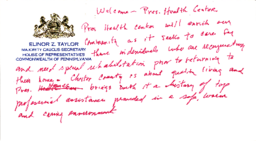 Welcome - Pres. Health Center
Health Center will enrich our
Community as it seeks to care for
those individuals who are recuperating
and need special rehabilitation prior to returning to
their homes - Chester County is about quality living and
Pres. brings with it a history of top
professional assistance provided in a safe, warm
and caring environment
ELINOR Z. TAYLOR
MAJORITY CAUCUS SECRETARY
HOUSE OF REPRESENTATIVES
COMMONWEALTH OF PENNSYLVANIA